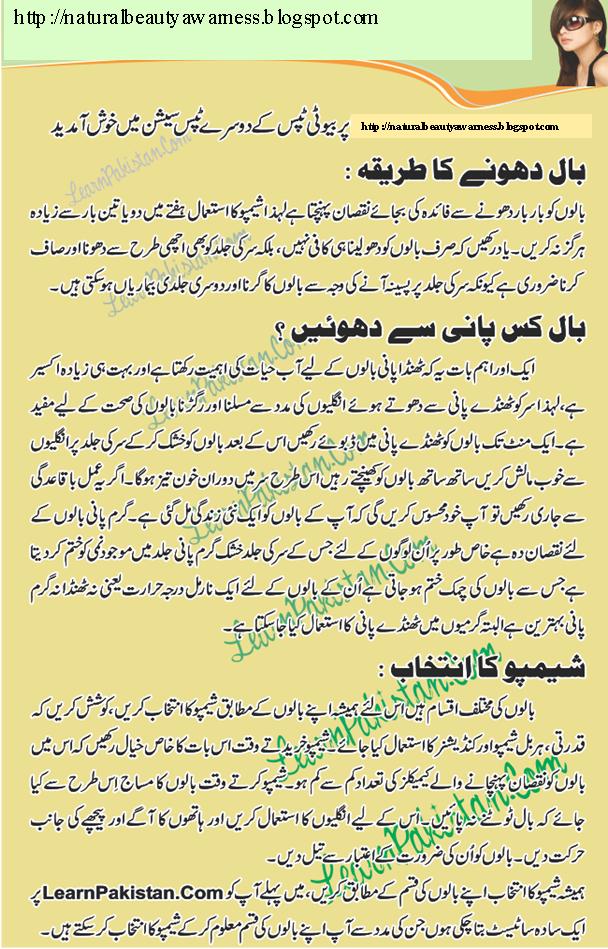 http://naturalbeautyawarness.blogspot.com
http://naturalbeautyawarness.blogspot.com پر بیوٹی ٹپس کے دوسرے ٹپس سیشن میں خوش آمدید
بال دھونے کا طریقہ :
بالوں کو بار بار دھونے سے فائدہ کی بجائے نقصان پہنچتا ہے لہذا شیمپو کا استعمال ہفتے میں دو یا تین بار سے زیادہ
ہرگز نہ کریں۔ یاد رکھیں کہ صرف بالوں کو دھو لینا ہی کافی نہیں، بلکہ سر کی جلد کو بھی اچھی طرح سے دھونا اور صاف
کرنا ضروری ہے کیونکہ سر کی جلد پر پسینہ آنے کی وجہ سے بالوں کا گرنا اور دوسری جلدی بیماریاں ہو سکتی ہیں۔
بال کس پانی سے دھوئیں ؟
ایک اور اہم بات یہ کہ ٹھنڈا پانی بالوں کے لیے آب حیات کی اہمیت رکھتا ہے اور بہت ہی زیادہ اکسیر
ہے، لہذا سر کو ٹھنڈے پانی سے دھوتے ہوئے انگلیوں کی مدد سے مسلنا اور رگڑنا بالوں کی صحت کے لیے مفید
ہے۔ ایک منٹ تک بالوں کو ٹھنڈے پانی میں ڈبوئے رکھیں اس کے بعد بالوں کو خشک کر کے سر کی جلد پر انگلیوں
سے خوب مالش کریں ساتھ ساتھ بالوں کو کھینچتے رہیں اس طرح سر میں دوران خون تیز ہو گا۔ اگر یہ عمل باقاعدگی
سے جاری رکھیں تو آپ خود محسوس کریں گی کہ آپ کے بالوں کو ایک نئی زندگی مل گئی ہے۔ گرم پانی بالوں کے
لئے نقصان دہ ہے خاص طور پر اُن لوگوں کے لئے جس کے سر کی جلد خشک گرم پانی جلد میں موجود نمی کو ختم کر دیتا
ہے جس سے بالوں کی چمک ختم ہو جاتی ہے اُن کے بالوں کے لئے ایک نارمل درجہ حرارت یعنی نہ ٹھنڈا نہ گرم
پانی بہترین ہے البتہ گرمیوں میں ٹھنڈے پانی کا استعمال کیا جا سکتا ہے۔
شیمپو کا انتخاب :
بالوں کی مختلف اقسام ہیں اس لئے ہمیشہ اپنے بالوں کے مطابق شیمپو کا انتخاب کریں، کوشش کریں کہ
قدرتی، ہربل شیمپو اور کنڈیشنر کا استعمال کیا جائے۔ شیمپو خریدتے وقت اس بات کا خاص خیال رکھیں کہ اس میں
بالوں کو نقصان پہنچانے والے کیمیکلز کی تعداد کم سے کم ہو۔ شیمپو کرتے وقت بالوں کا مساج اِس طرح سے کیا
جائے کہ بال ٹوٹنے نہ پائیں۔ اس کے لیے انگلیوں کا استعمال کریں اور ہاتھوں کا آگے اور پیچھے کی جانب
حرکت دیں۔ بالوں کو اُن کی ضرورت کے اعتبار سے تیل دیں۔
ہمیشہ شیمپو کا انتخاب اپنے بالوں کی قسم کے مطابق کریں، میں پہلے آپ کو LearnPakistan.Com پر
ایک سادہ سا ٹیسٹ بتا چکی ہوں جن کی مدد سے آپ اپنے بالوں کی قسم معلوم کر کے شیمپو کا انتخاب کر سکتے ہیں۔
LearnPakistan.Com
LearnPakistan.Com
LearnPakistan.Com
LearnPakistan.Com
LearnPakistan.Com
LearnPakistan.Com
LearnPakistan.Com